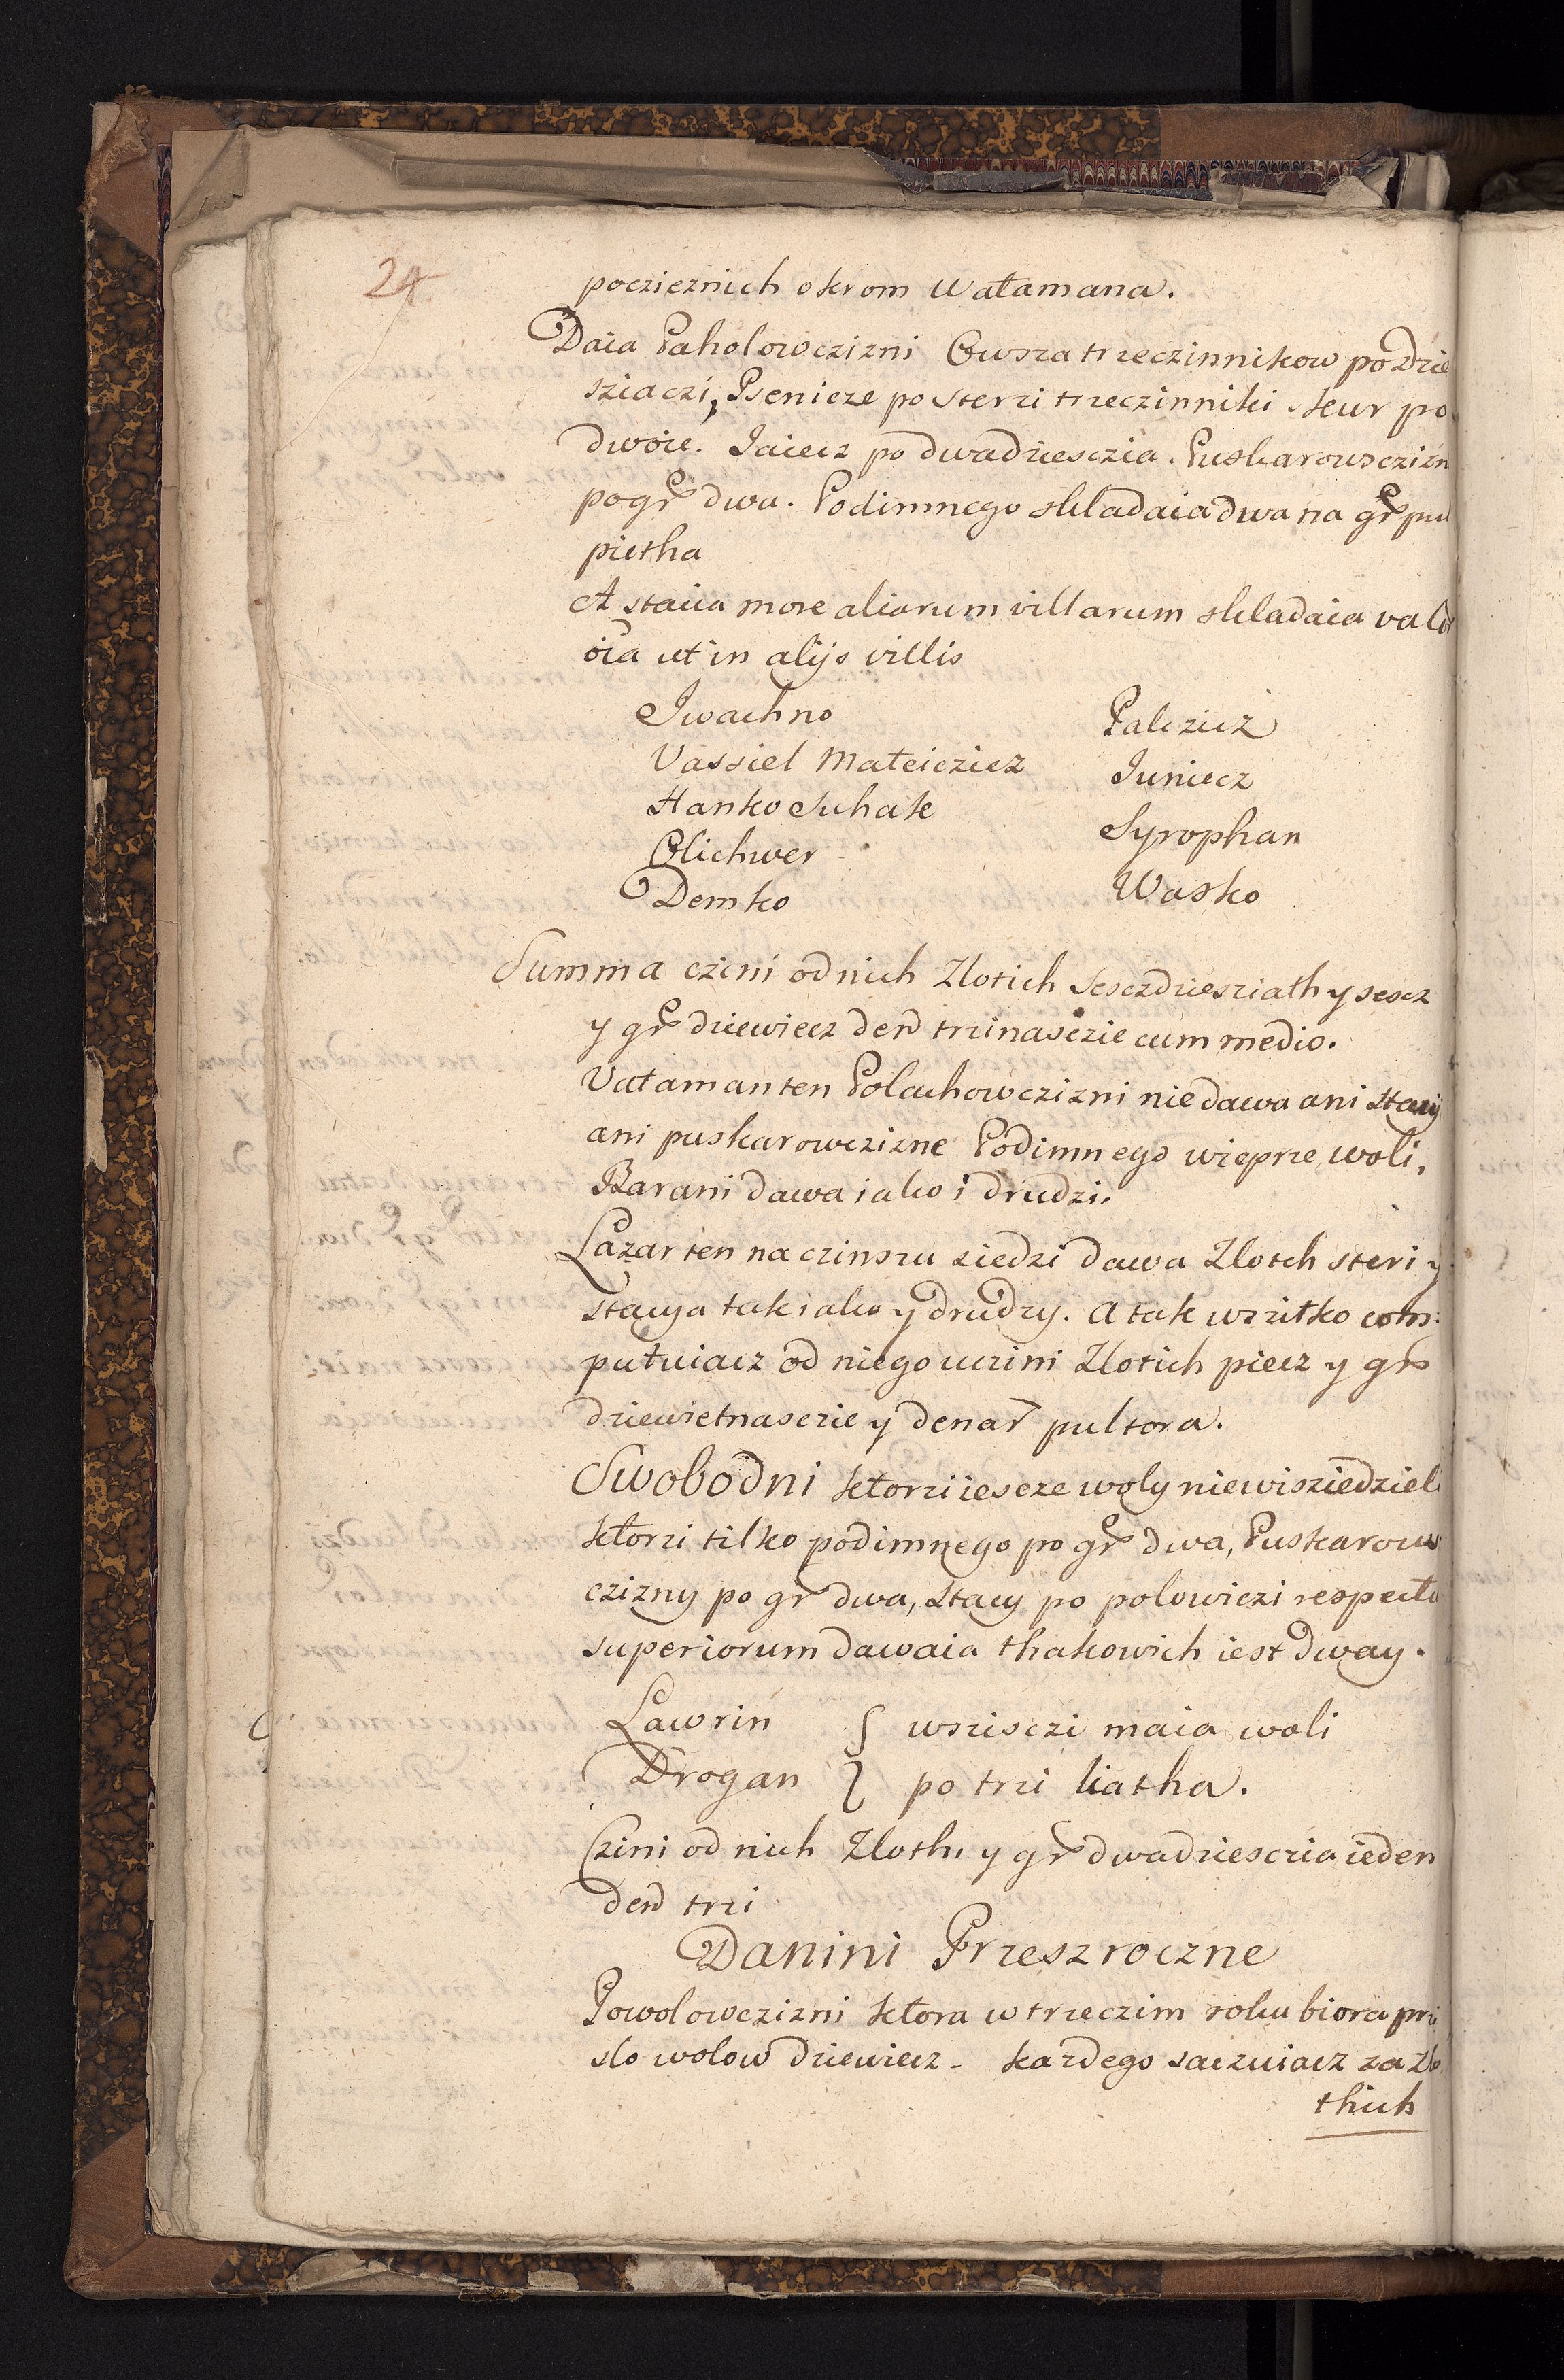 24.
poczieznich okrom Watamana.
Daia Paholowczizni Owsza trzeczinnikow po Dzie
sziaczi, Psenicze po sterzi trzeczinniki. Kur po
dwoie. Iaiecz po dwadziesczia. Puskarowsczizn
po gr dwa. Podimnego skladaia dwa na gr pul
pietha
A staiia more aliarum villarum skladaia valor
oia ut in alijs villis
Iwachno
Vassiel Mateiczicz
Hanko Suhak
Olichwer
Demko
Palczicz
Juniecz
Syrophan
Wasko
Summa czini od nich Zlotich sesczdziesziath y sescz
y gr dziewiecz den trzinasczie cum medio.
Vataman ten Polachowczizni nie dawa ani stacij
ani puskarowczizne Podimnego wieprze, woli,
Barani dawa iako i drudzi.
Lazar ten na czinszu siedzi dawa Zlotch steri y
stacya tak iako y drudzy. A tak wszitko com:
putuiacz od niego uczini Zlotich piecz y gr
dziewietnasczie y denar pultora.
Swobodni ktorzi iescze woly niewisziedzieli
ktorzi tilko podimnego po gr dwa, Puskarow
czizny po gr dwa, stacy po polowiczi respectu
superiorum dawaia thakowich iest dway.
Lawrin { wszisczi maia woli
Drogan } po trzi liatha.
Czini od nich Zloth 1 y gr dwadziesczia ieden
den trzi
Danini Przeszroczne
Powolowczizni ktora w trzeczim roku biora pri
slo wolow dziewiecz - kazdego saczuiacz za Zlo
thich